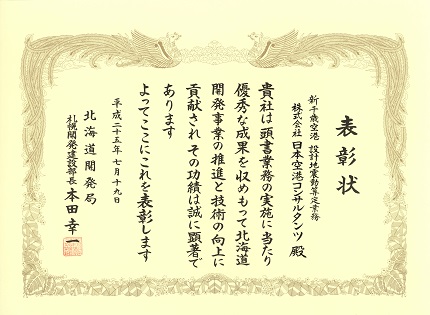 表彰状
新千歳空港 設計地震動算定業務
株式会社 日本空港コンサルタンツ 殿
貴社は頭書業務の実施に当たり
優秀な成果を収めもって北海道
開発事業の推進と技術の向上に
貢献されその功績は誠に顕著で
あります
よってここにこれを表彰します
平成二十五年七月十九日
北海道開発局
札幌開発建設部長 本田幸一